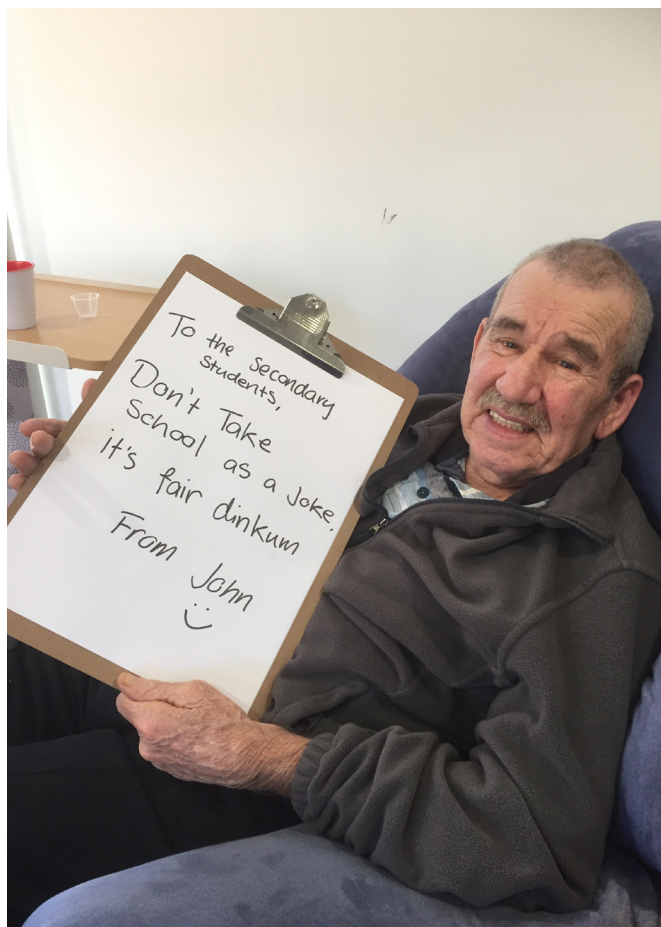 To the Secondary
Students,
Don't Take
School as a Joke,
it's fair dinkum
From John